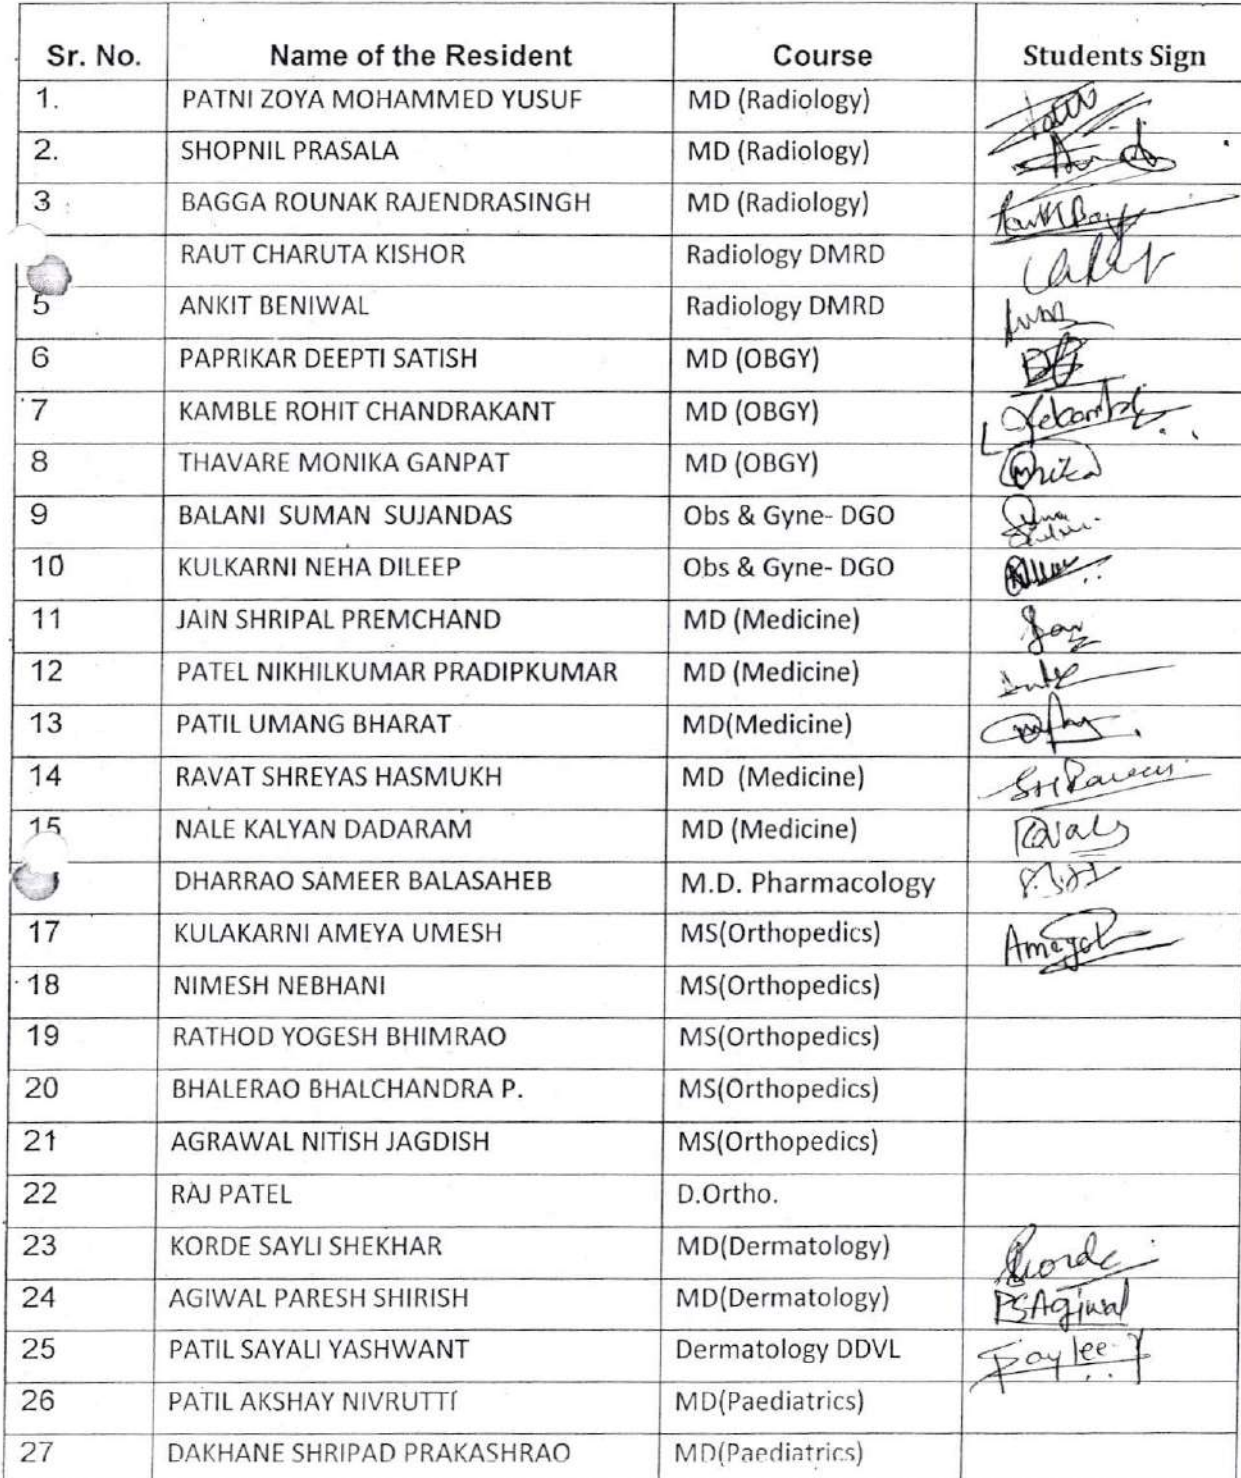 Sr. No. Name of the Resident Course Students Sign
1. PATNI ZOYA MOHAMMED YUSUF MD (Radiology)
2. SHOPNIL PRASALA MD (Radiology)
3 BAGGA ROUNAK RAJENDRASINGH MD (Radiology)
RAUT CHARUTA KISHOR Radiology DMRD
5 ANKIT BENIWAL Radiology DMRD
6 PAPRIKAR DEEPTI SATISH MD (OBGY)
7 KAMBLE ROHIT CHANDRAKANT MD (OBGY)
8 THAVARE MONIKA GANPAT MD (OBGY)
9 BALANI SUMAN SUJANDAS Obs & Gyne- DGO
10 KULKARNI NEHA DILEEP Obs & Gyne- DGO
11 JAIN SHRIPAL PREMCHAND MD (Medicine)
12 PATEL NIKHILKUMAR PRADIPKUMAR MD (Medicine)
13 PATIL UMANG BHARAT MD(Medicine)
14 RAVAT SHREYAS HASMUKH MD (Medicine)
15 NALE KALYAN DADARAM MD (Medicine)
DHARRAO SAMEER BALASAHEB M.D. Pharmacology
17 KULAKARNI AMEYA UMESH MS(Orthopedics)
18 NIMESH NEBHANI MS(Orthopedics)
19 RATHOD YOGESH BHIMRAO MS(Orthopedics)
20 BHALERAO BHALCHANDRA P. MS(Orthopedics)
21 AGRAWAL NITISH JAGDISH MS(Orthopedics)
22 RAJ PATEL D.Ortho.
23 KORDE SAYLI SHEKHAR MD(Dermatology)
24 AGIWAL PARESH SHIRISH MD(Dermatology) PSAgiwal
25 PATIL SAYALI YASHWANT Dermatology DDVL
26 PATIL AKSHAY NIVRUTTI MD(Paediatrics)
27 DAKHANE SHRIPAD PRAKASHRAO MD(Paediatrics)